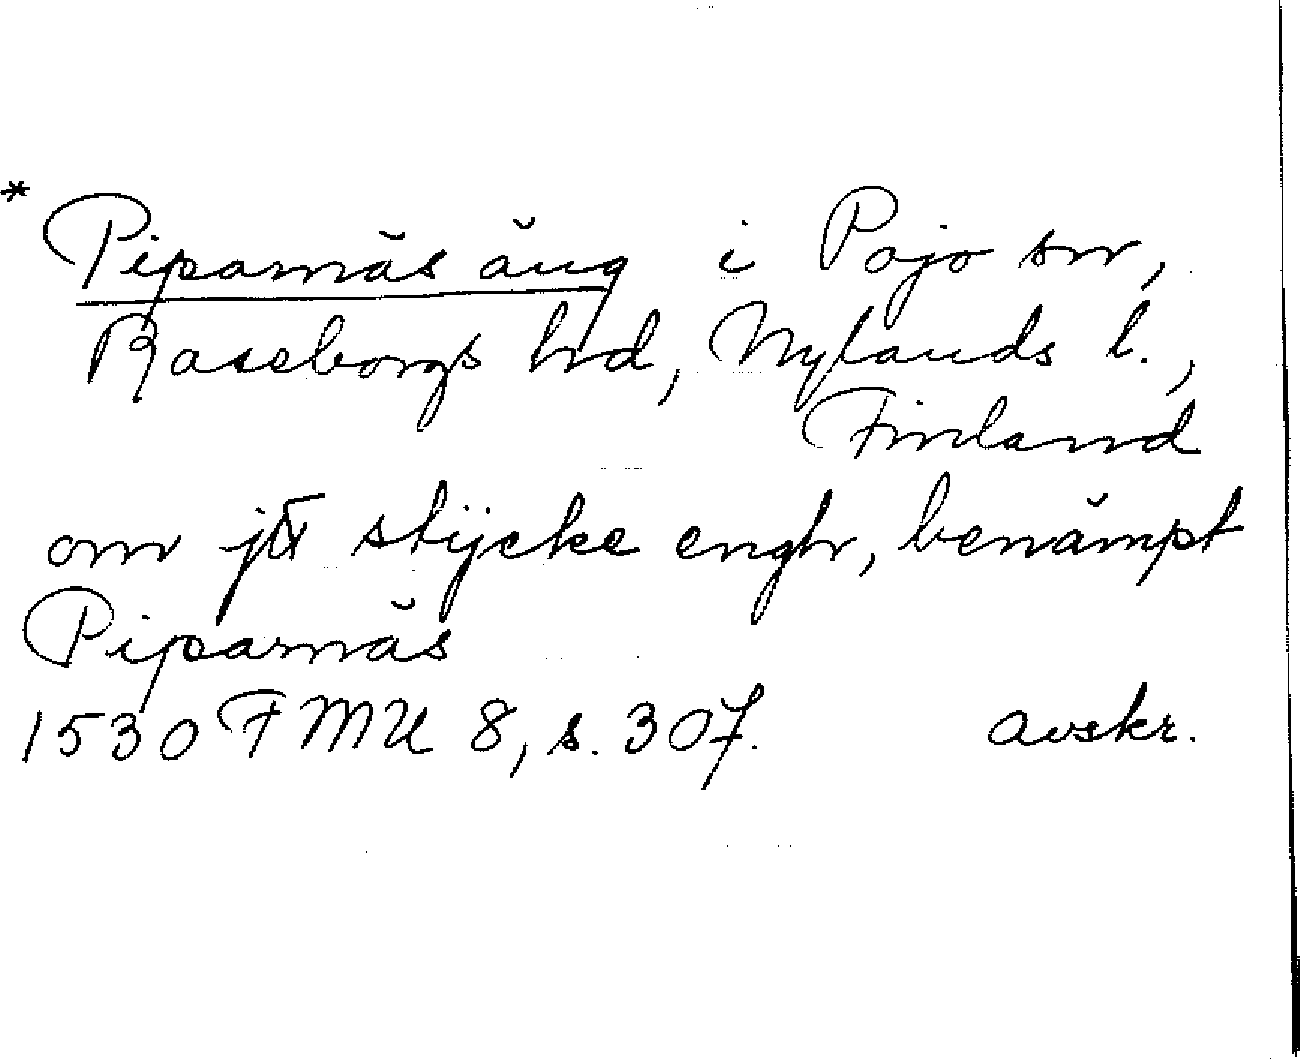 * Piparnäs äng i Pojo sn,
Raseborgs hd, Nylands l.,
Finland
om jtt stÿcke engh, benämpt
Piparnäs
1530 FMU 8, s. 307. avskr.